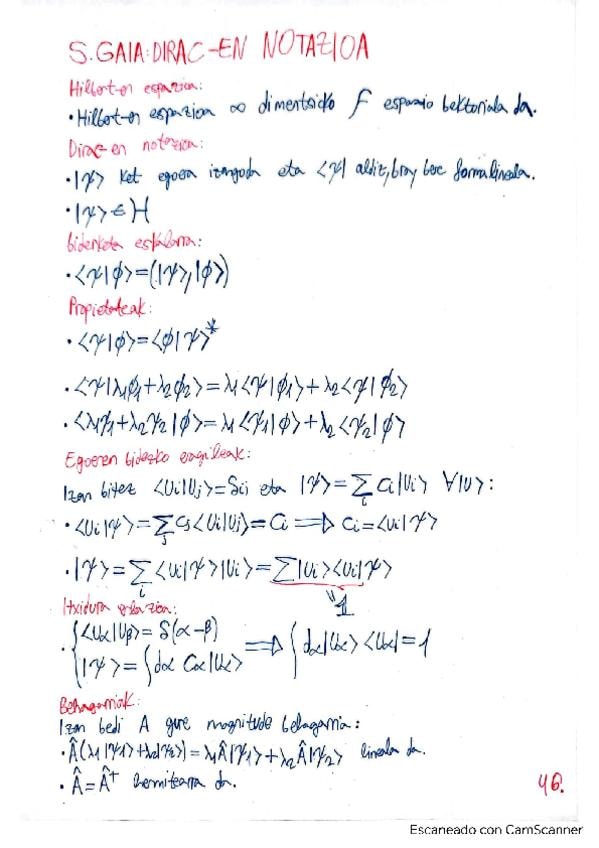 5. GAIA: DIRAC-EN NOTAZIOA
Hilbert-en espazioa:
• Hilbert-en espazioa ∞ dimentsioko F espazio bektoriala da.
Dirac-en notazioa:
• |ψ> ket egoera izango da eta <ψ| aldiz, bra, bere forma lineala.
• |ψ> ∈ H
biderketa eskalarra:
• <ψ|ϕ> = (|ψ>, |ϕ>)
Propietateak:
• <ψ|ϕ> = <ϕ|ψ>*
• <ψ|λ1ϕ1+λ2ϕ2> = λ1<ψ|ϕ1> + λ2<ψ|ϕ2>
• <λ1ψ1+λ2ψ2|ϕ> = λ1<ψ1|ϕ> + λ2<ψ2|ϕ>
Egoeren bidezko eragileak:
Izan bitez <ui|uj> = δij eta |ψ> = Σi ci|ui> ∀|u>:
• <ui|ψ> = Σj cj<ui|uj> = ci ⟹ ci = <ui|ψ>
• |ψ> = Σi <ui|ψ>|ui> = Σ|ui><ui|ψ>
"1
Itxidura erlazioa:
• { <uα|uβ> = δ(α-β)
|ψ> = ∫dα cα|uα> ⟹ ∫dα|uα><uα| = 1
Behagarriak:
Izan bedi A gure magnitude behagarria:
• Â(λ1|ψ1>+λ2|ψ2>) = λ1Â|ψ1> + λ2Â|ψ2> lineala da.
• Â = Â† hermitearra da.
46.
Escaneado con CamScanner